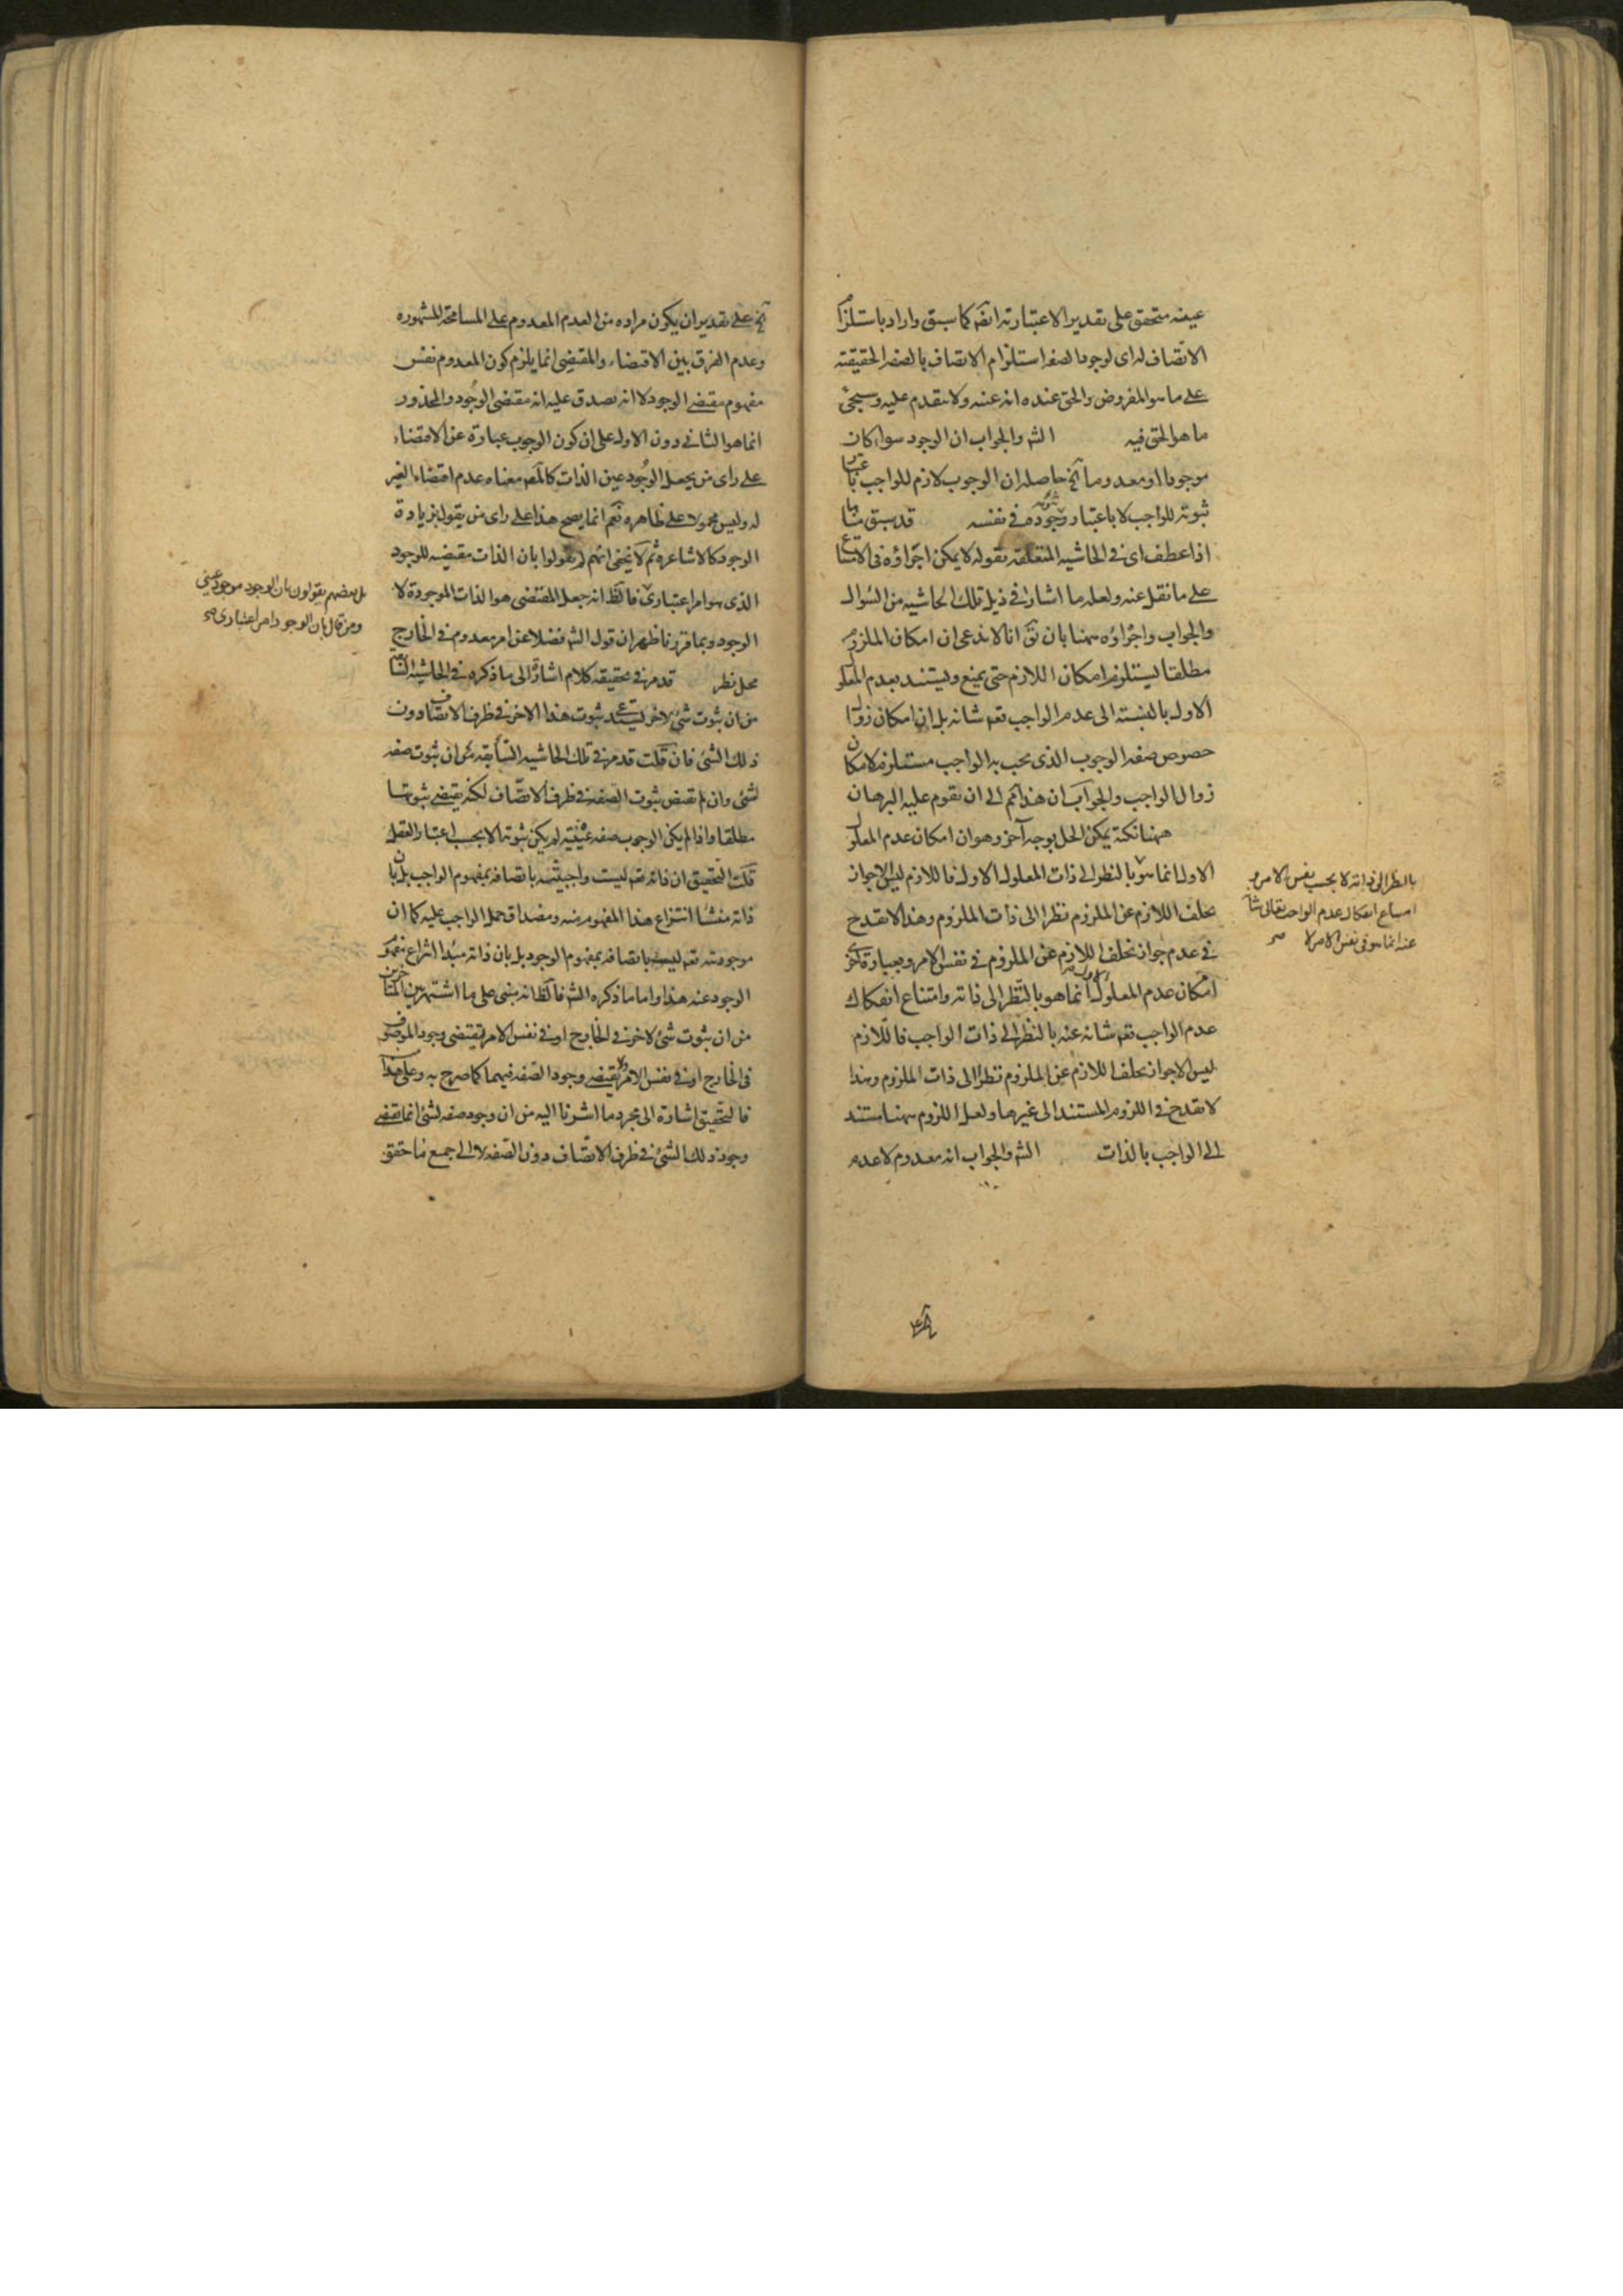 عينه متحقق على تقدير الاعتبارية ايضا كما سبق واراد باستلزام
الاتصاف له اى لوجود الصفة استلزام الاتصاف بالصفة الحقيقية
على ما هو المفروض والحق عنده انه عينه ولا يتقدم عليه وسيجئ
ما هو الحق فيه الش والجواب ان الوجود سواء كان
موجودا او معدوما آخ حاصله ان الوجوب لازم للواجب باعتبار
ثبوته للواجب لا باعتبار وجوده فى نفسه قد سبق منا
اذا عطف اى فى الحاشية المتعلقة بقوله لا يمكن اجراؤه فى الامتناع
على ما نقل عنه ولعله ما اشار فى ذيل تلك الحاشية من السؤال
والجواب واجراؤه ههنا بان يق انا لا ندعى ان امكان الملزوم
مطلقا يستلزم امكان اللازم حتى يمنع ويستند بعدم المعلول
الاول بالنسبة الى عدم الواجب تعه شانه بل ان امكان زوال
خصوص صفة الوجوب الذى يجب به الواجب مستلزم لامكان
زوال الواجب والجواب ان هذا تحكم الى ان يقوم عليه البرهان
ههنا نكتة يمكن الحل بوجه آخر وهو ان امكان عدم المعلول
الاول انما هو بالنظر الى ذات المعلول الاول فاللازم ليس الا جواز
تخلف اللازم عن الملزوم نظرا الى ذات الملزوم وهذا لا يقدح
فى عدم جواز تخلف اللازم عن الملزوم فى نفس الامر وبعبارة اخرى
امكان عدم المعلول الاول انما هو بالنظر الى ذاته وامتناع انفكاك
عدم الواجب تعه شانه عنه بالنظر الى ذات الواجب فاللازم
ليس الا جواز تخلف اللازم عن الملزوم نظرا الى ذات الملزوم وهذا
لا يقدح فى اللزوم المستند الى غيرها ولعل اللزوم ههنا مستند
الى الواجب بالذات الش والجواب انه معدوم لا عدم
بالنظر الى ذاته لا بحسب نفس الامر و
امتناع انفكاك عدم الواجب تعالى شانه
عنه انما هو فى نفس الامر لا صح
آخ على تقدير ان يكون مراده من العدم المعدوم على المسامحة المشهورة
وعدم الفرق بين الاقتضاء والمقتضى انما يلزم كون المعدوم نفس
مفهوم مقتضى الوجود لا انه يصدق عليه انه مقتضى الوجود والمحذور
انما هو الثانى دون الاول على ان كون الوجوب عبارة عن الاقتضاء
على راى من يجعل الوجود عين الذات كالمص معناه عدم اقتضاء الغير
له وليس محمولا على ظاهره نعم انما يصح هذا على راى من يقول بزيادة
الوجود كالاشاعرة ثم لا يخفى انهم لم يقولوا بان الذات مقتضيه للوجود
الذى هو امر اعتبارى فالظ انه جعل المقتضى هو الذات الموجودة لا
الوجود وبما قررنا ظهر ان قول الش فضلا عن امر معدوم فى الخارج
محل نظر قد مر فى تحقيقه كلام اشارة الى ما ذكره فى الحاشية السابقة
من ان ثبوت شئ لاخر يستدعى ثبوت هذا الاخر فى ظرف الاتصاف دون
ذلك الشئ فان قلت قد مر فى تلك الحاشية السابقة من ان ثبوت صفة
لشئ وان لم تقتض ثبوت الصفة فى ظرف الاتصاف لكنه يقتضى ثبوتها
مطلقا واذا لم يكن الوجوب صفة عينية لم يكن ثبوتها الا بحسب اعتبار العقل
قلت التحقيق ان ذاته تعه ليست واجبيته باتصافه بمفهوم الواجب بل بان
ذاته منشأ انتزاع هذا المفهوم منه ومصداق حمل الواجب عليه كما ان
موجوديته تعه ليست باتصافه بمفهوم الوجود بل بان ذاته مبدا انتزاع مفهوم
الوجود عنه هذا واما ما ذكره الش فالظ انه مبنى على ما اشتهر بين المتاخرين
من ان ثبوت شئ لاخر فى الخارج او فى نفس الامر يقتضى وجود الموصوف
فى الخارج او فى نفس الامر ولا يقتضى وجود الصفة فيهما كما صرح به وعلى هذا
فالتحقيق اشارة الى مجرد ما اشرنا اليه من ان وجود صفة لشئ انما يقتضى
وجود ذلك الشئ فى ظرف الاتصاف دون الصفة لا الى جميع ما حقق
بل بعضهم يقولون بان الوجود موجود عينى
ومن قال بان الوجود امر اعتبارى صح